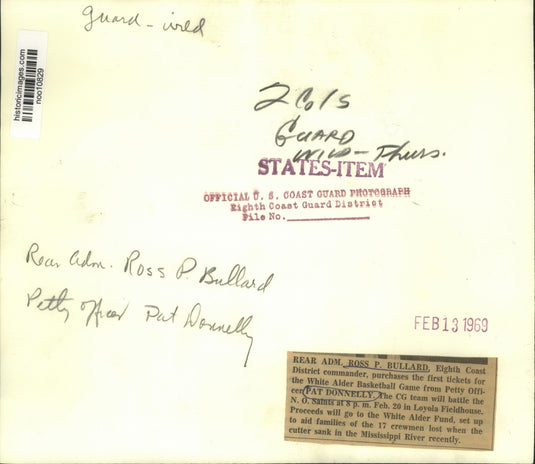 guard - wed
historicimages.com
noo10829
2 Cols
GUARD
WILD - Thurs.
STATES-ITEM
OFFICIAL U. S. COAST GUARD PHOTOGRAPH
Eighth Coast Guard District
File No.
Rear Adm. Ross P. Bullard
Petty officer Pat Donnelly
FEB 13 1969
REAR ADM. ROSS P. BULLARD, Eighth Coast
District commander, purchases the first tickets for
the White Alder Basketball Game from Petty Offi-
cer PAT DONNELLY. The CG team will battle the
N. O. Saints at 8 p. m. Feb. 20 in Loyola Fieldhouse.
Proceeds will go to the White Alder Fund, set up
to aid families of the 17 crewmen lost when the
cutter sank in the Mississippi River recently.